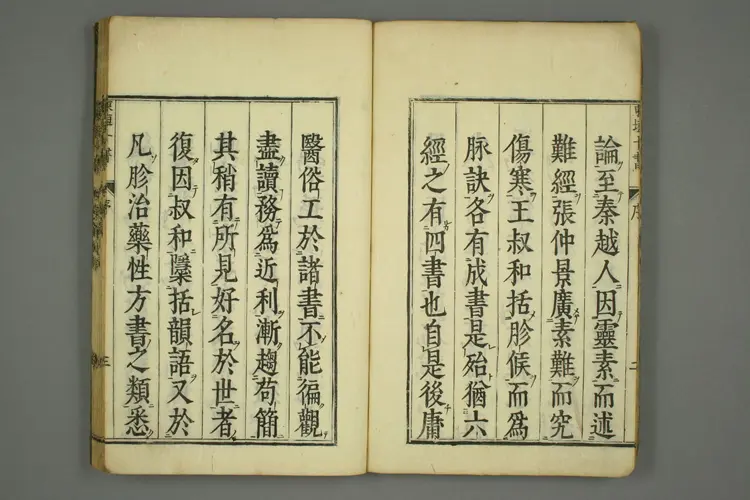 論至秦越人因靈素而述
難經張仲景廣素難而究
傷寒王叔和括胗候而為
脉訣各有成書是殆猶六
經之有四書也自是後庸
醫俗工於諸書不能徧觀
盡讀務為近利漸趨苟簡
其稍有所見好名於世者
復因叔和櫽括韻語又於
凡胗治藥性方書之類悉
序
二
三